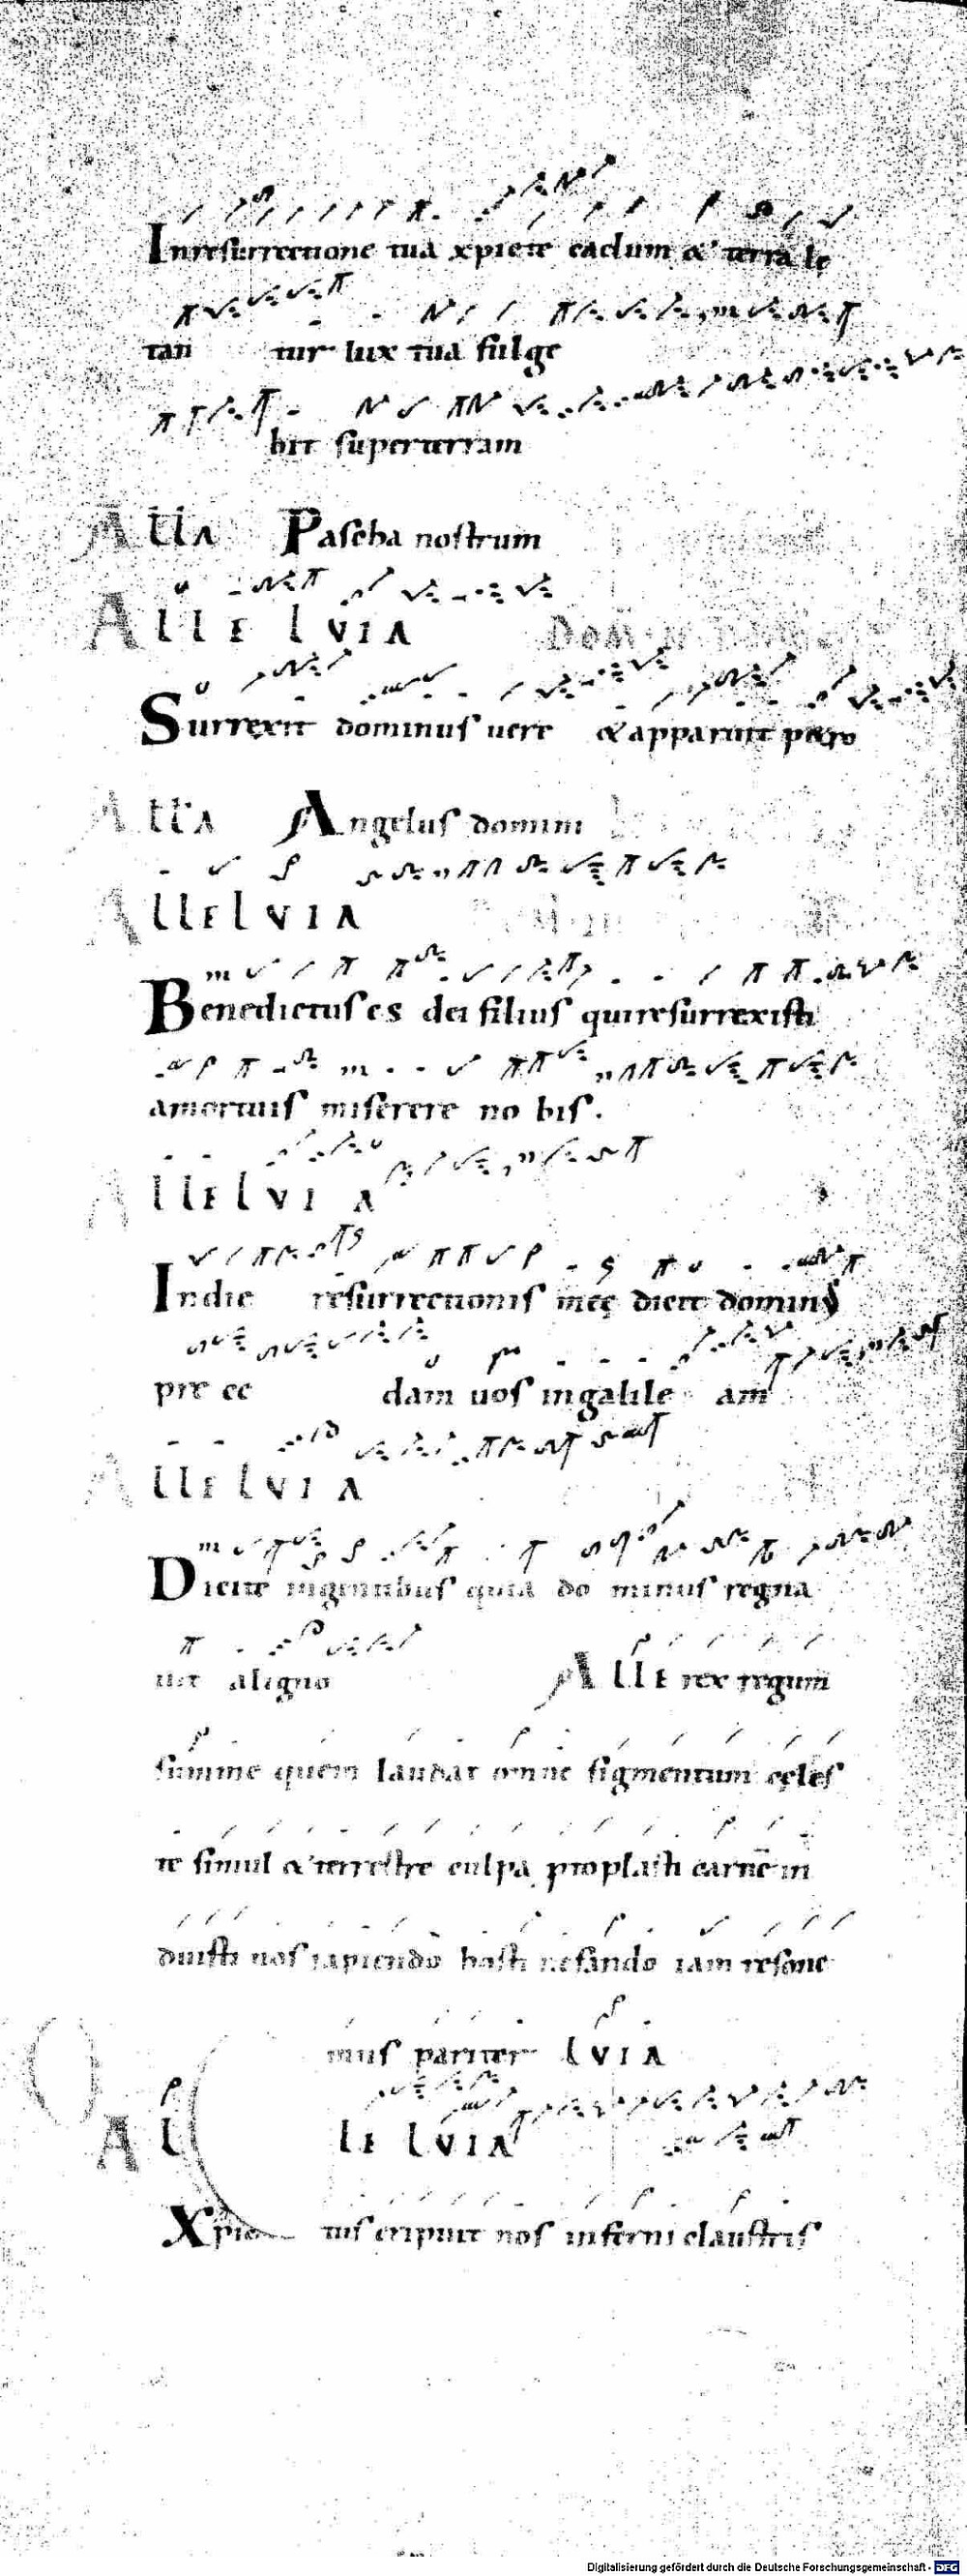 Inresurrectione tua xpiste caelum & terra le
tan tur lux tua fulge
bit superterram
All̃a Pascha nostrum
Alleluia
Surrexit dominus uere & apparuit p&ro
All̃a Angelus domini
Alleluia
Benedictus es dei filius quiresurrexisti
amortuis miserere no bis.
Alleluia
Indie resurrectionis meę dicit dominus
pre ce dam uos ingalile am
Alleluia
Dicite ingentibus quia do minus regna
uit aligno Alle rex regum
summe quem laudat omne figmentum cęles
te simul & terrestre culpa proplasti carnē in
duisti nos rapiendo hosti nefando iam resone
mus pariter luia
Al leluia
Xpic tus eripuit nos inferni claustris
Digitalisierung gefördert durch die Deutsche Forschungsgemeinschaft - DFG